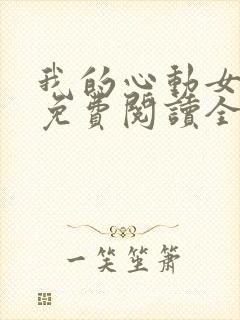 我的心動女
免費閱讀全
一笑坐簫